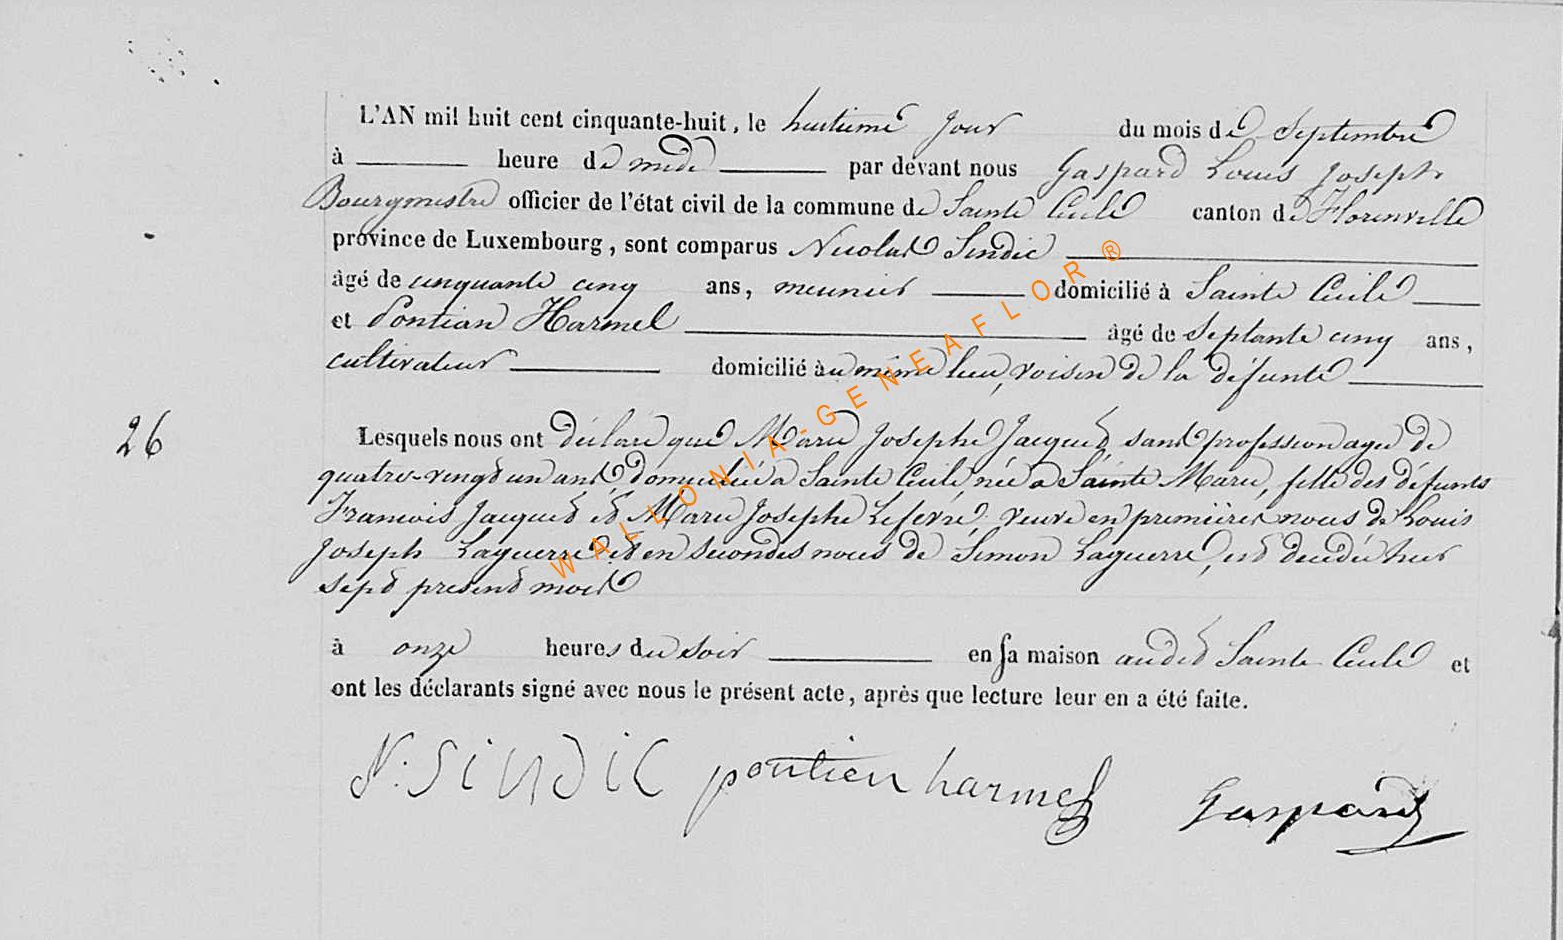 L'AN mil huit cent cinquante-huit, le huitieme jour du mois de Septembre
à heure de midi par devant nous Gaspard Louis Joseph
Bourgmestre officier de l'état civil de la commune de Sainte Cecile canton de Florenville
province de Luxembourg, sont comparus Nicolas Sindic
âgé de cinquante cinq ans, meunier domicilié à Sainte Cecile
et Pontian Harmel âgé de Septante cinq ans,
cultivateur domicilié au même lieu, voisin de la défunte
26
Lesquels nous ont déclaré que Marie Josephe Jacques sans profession agée de
quatre-vingt un ans domiciliée a Sainte Cecile, née a Sainte Marie, fille des défunts
Francois Jacques et Marie Josephe Lefevre veuve en premières noces de Louis
Joseph Laguerre et en secondes noces de Simon Laguerre, est decedée hier
sept present mois
à onze heures du soir en sa maison audit Sainte Cecile et
ont les déclarants signé avec nous le présent acte, après que lecture leur en a été faite.
N. Sindic pontien harmel Gaspard
WALLONIA-GENEAFLOR ®